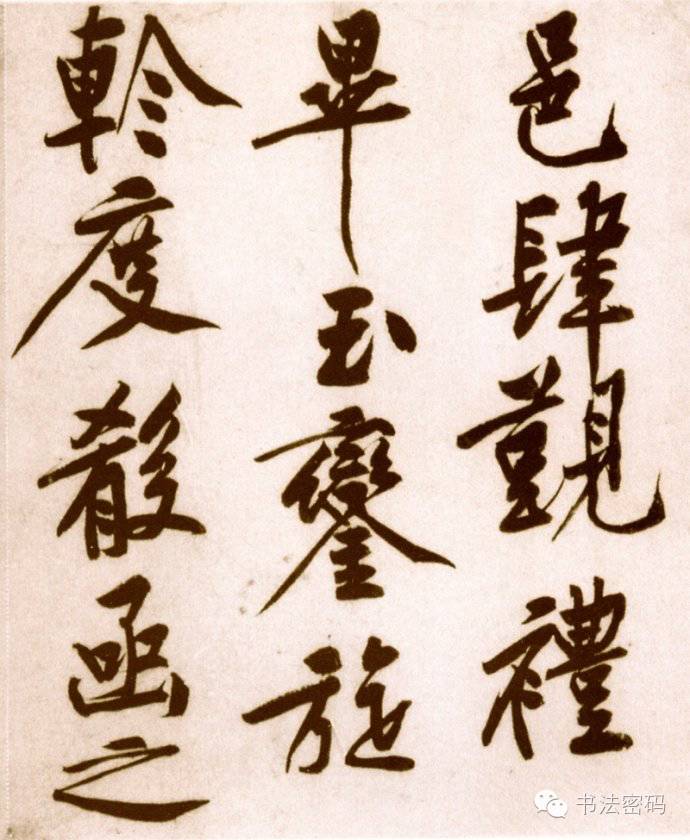 邑肆覲禮
畢玉鑾旋
軫度殽函之
书法密码